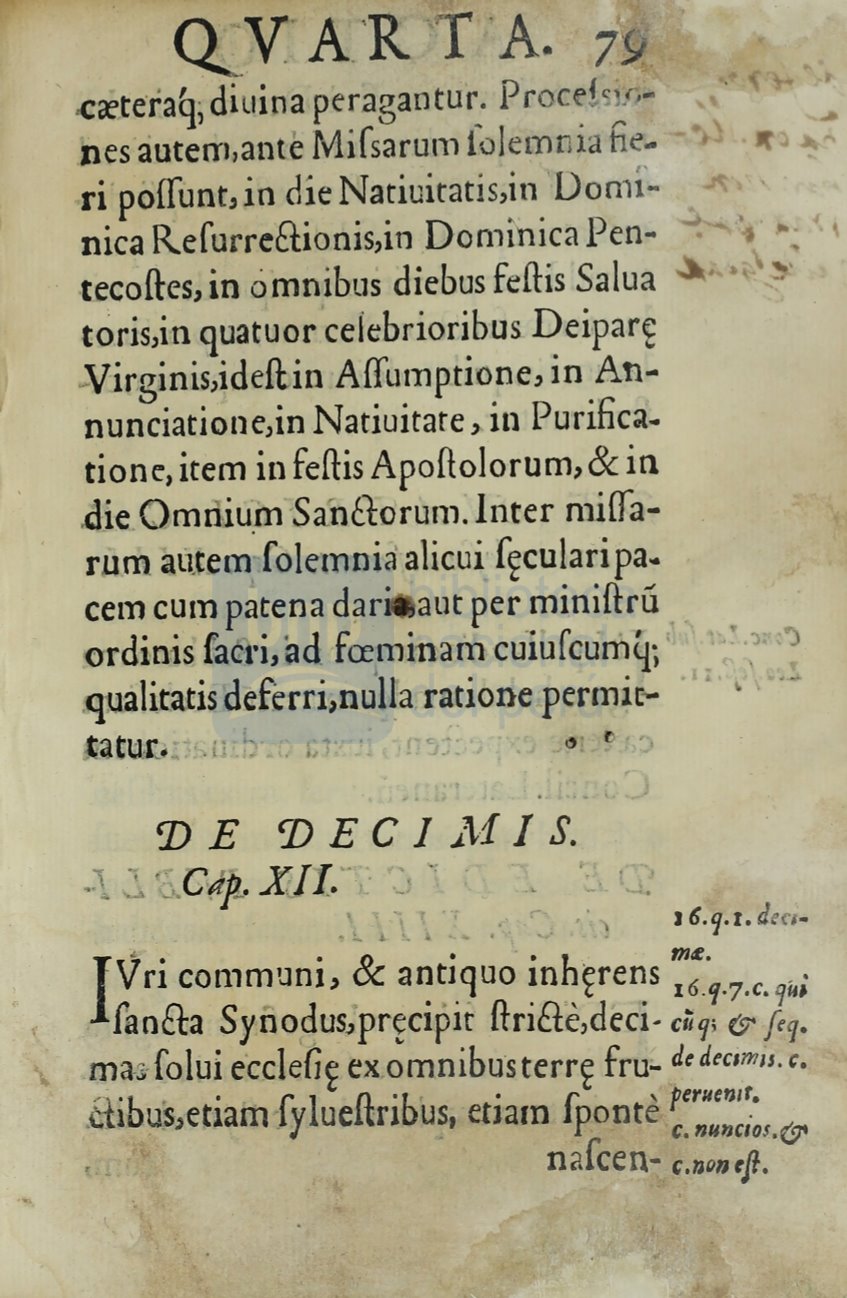 QVARTA. 79
cæteraq́; diuina peragantur. Processio-
nes autem, ante Miſsarum ſolemnia fie-
ri poſſunt, in die Natiuitatis, in Domi-
nica Reſurrectionis, in Dominica Pen-
tecoſtes, in omnibus diebus feſtis Salua
toris, in quatuor celebrioribus Deiparę
Virginis, ideſt in Aſſumptione, in An-
nunciatione, in Natiuitate, in Purifica-
tione, item in feſtis Apoſtolorum, & in
die Omnium Sanctorum. Inter miſſa-
rum autem ſolemnia alicui ſęculari pa-
cem cum patena dari, aut per miniſtrũ
ordinis ſacri, ad fœminam cuiuſcumq́;
qualitatis deferri, nulla ratione permit-
tatur.
DE DECIMIS.
Cap. XII.
IVri communi, & antiquo inhęrens
ſancta Synodus, pręcipit ſtrictè, deci-
mas ſolui eccleſię ex omnibus terrę fru-
ctibus, etiam ſylueſtribus, etiam ſpontè
naſcen-
16.q.1. deci-
mæ.
16.q.7.c. qui
cũq; & ſeq.
de decimis. c.
peruenit.
c. nuncios. &
c. non eſt.